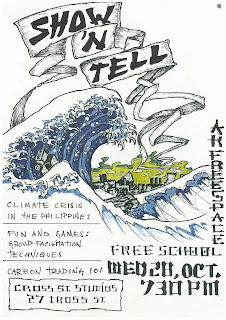 SHOW
'N
TELL
CLIMATE CRISIS
IN THE PHILIPPINES
FUN AND GAMES:
GROUP FACILITATION
TECHNIQUES
CARBON TRADING 101
CROSS ST STUDIOS
27 CROSS ST
AK FREESPACE
FREE SCHOOL
WED 28, OCT.
730 PM